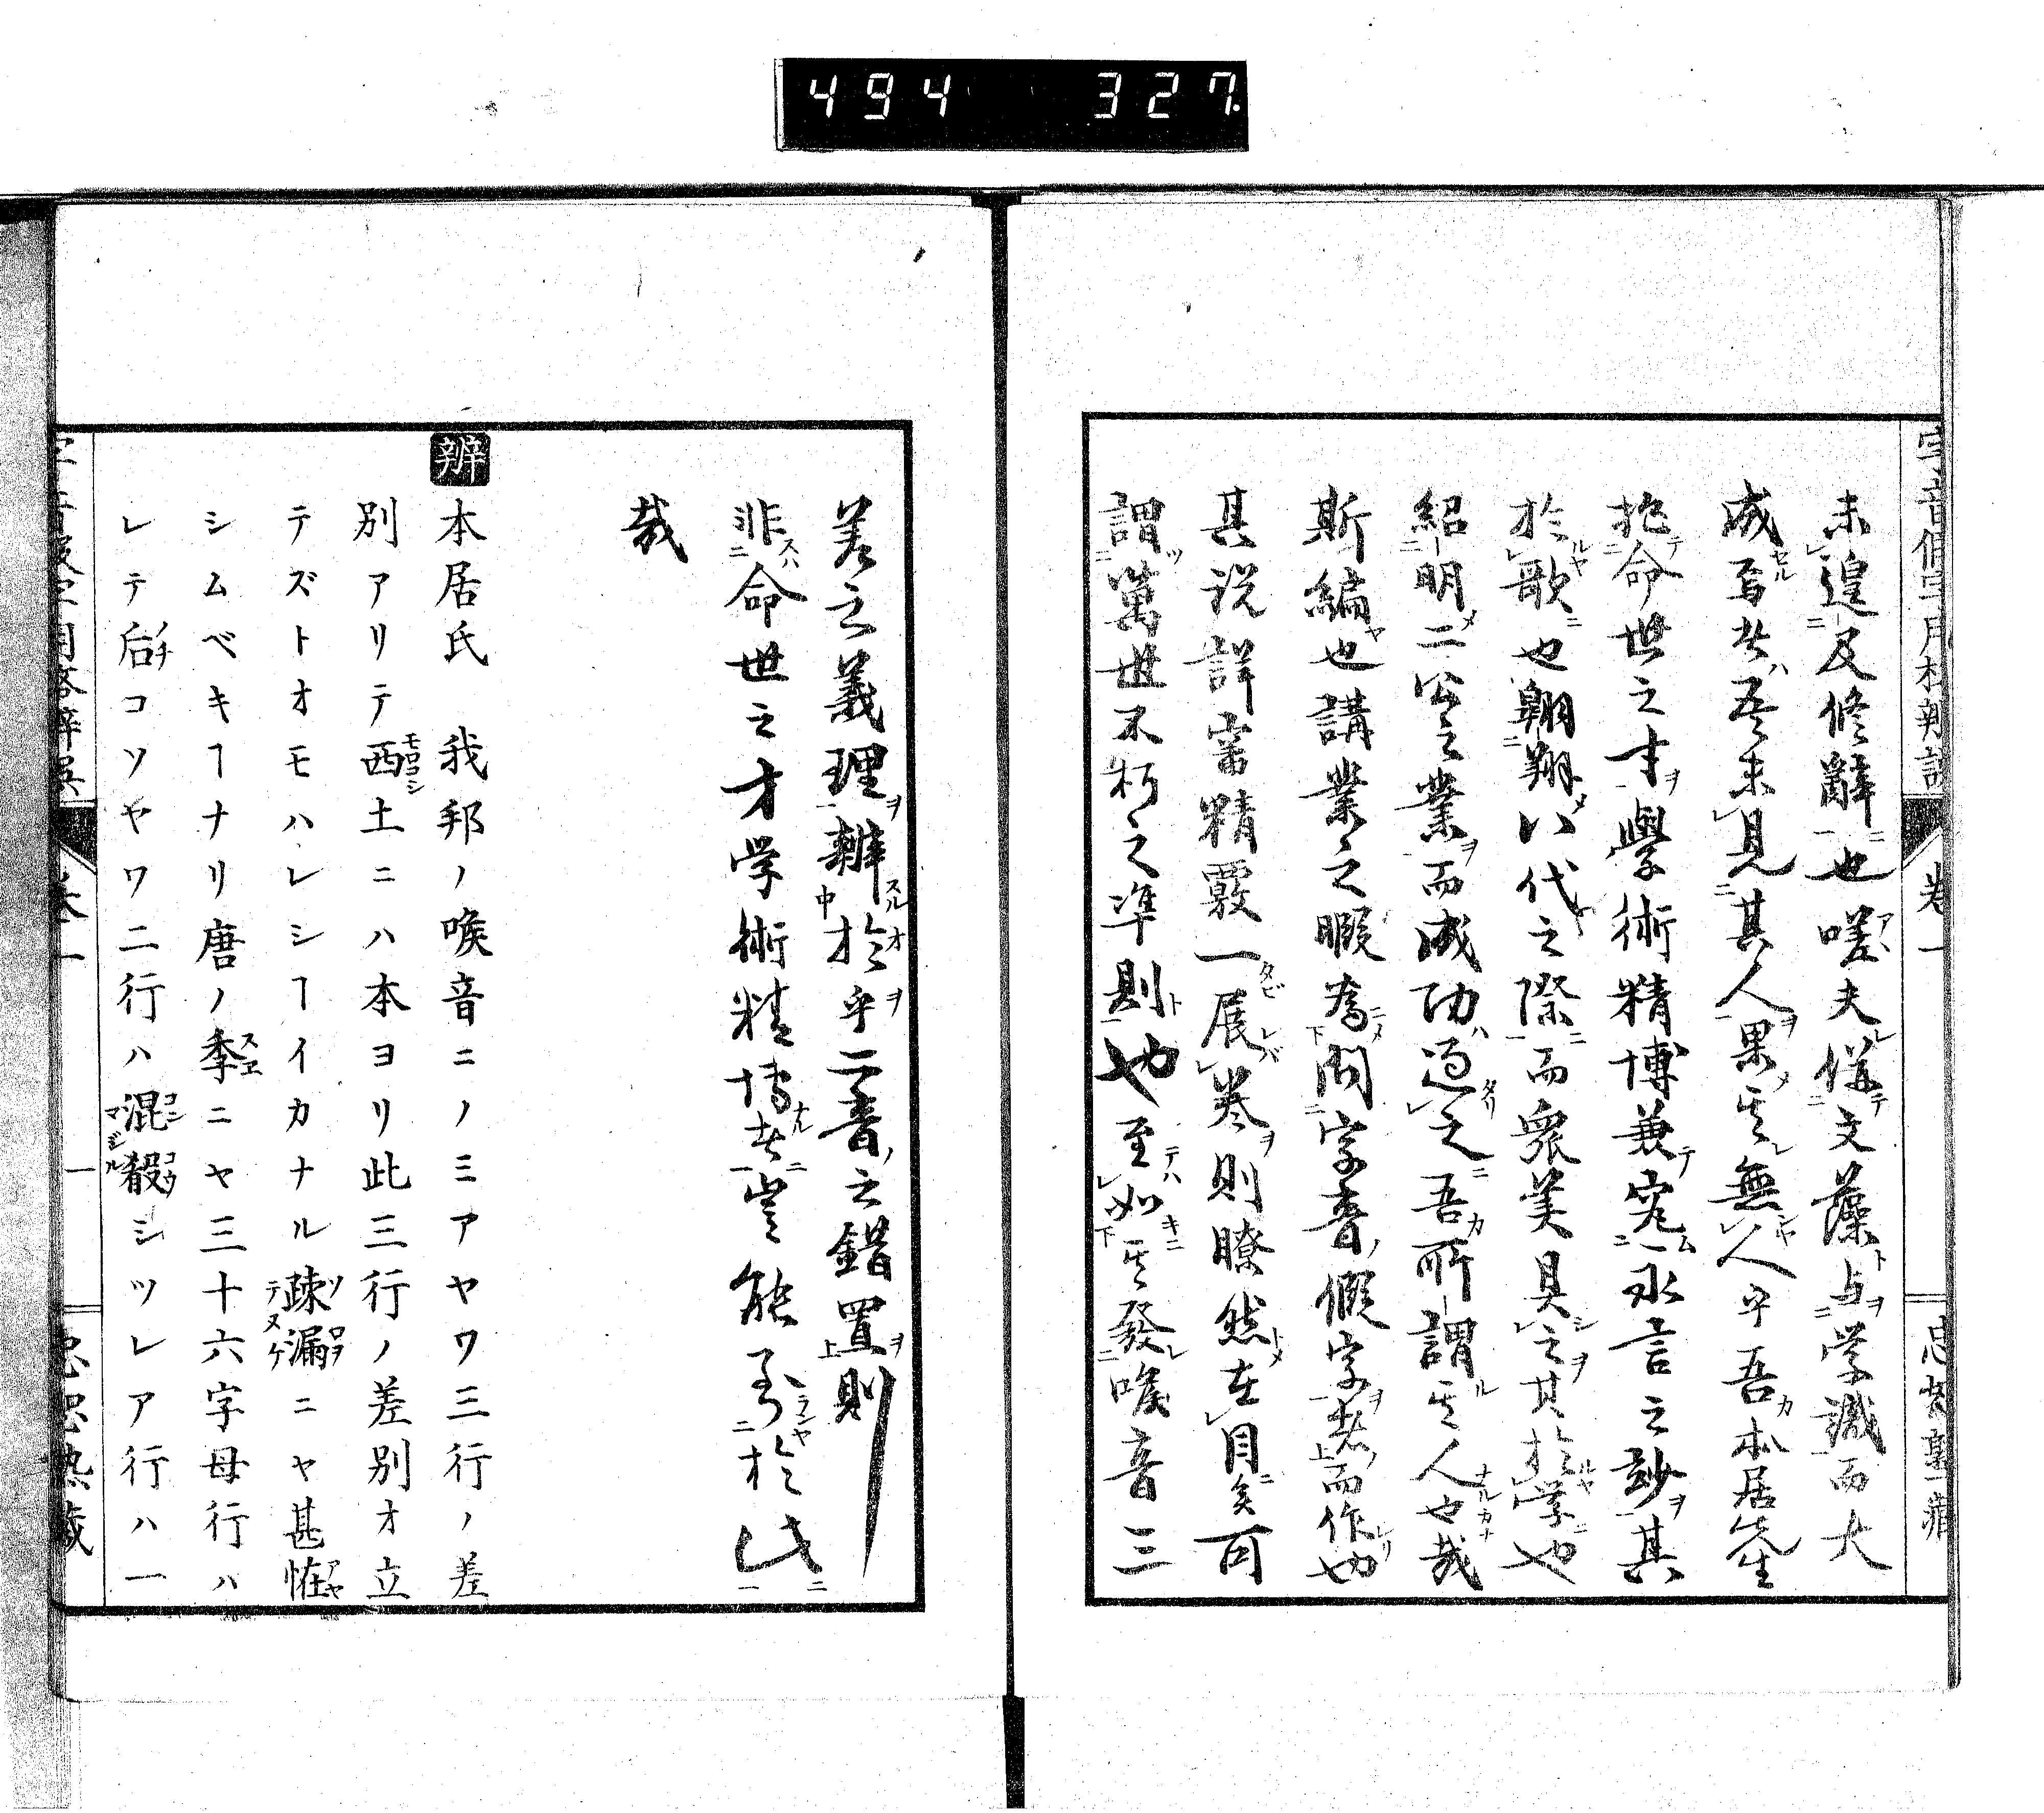 494 327
未遑及修辭也嗟夫併文藻与学識而大
成焉者吾未見其人果其無人乎吾本居先生
抱命世之才學術精博兼究永言之玅其
於歌也翺翔八代之際而衆美具之其於学也
紹明二公之業而成功過之吾所謂其人也哉
斯編也講業之暇為問字音假字者而作也
其説詳審精覈一展巻則瞭然在目矣可
謂萬世不朽之準則也至如其發喉音三
差之義理辨於乎二音之錯置則
非命世之才学術精博者寧能and於此
哉
辨
本居氏 我邦ノ喉音ニノミアヤワ三行ノ差
別アリテ西土ニハ本ヨリ此三行ノ差別オ立
テズトオモハレシヿイカナル疎漏ニヤ甚恠
シムベキヿナリ唐ノ季ニヤ三十六字母行ハ
レテ后コソヤワ二行ハ混殽シツレア行ハ一
卷一
一